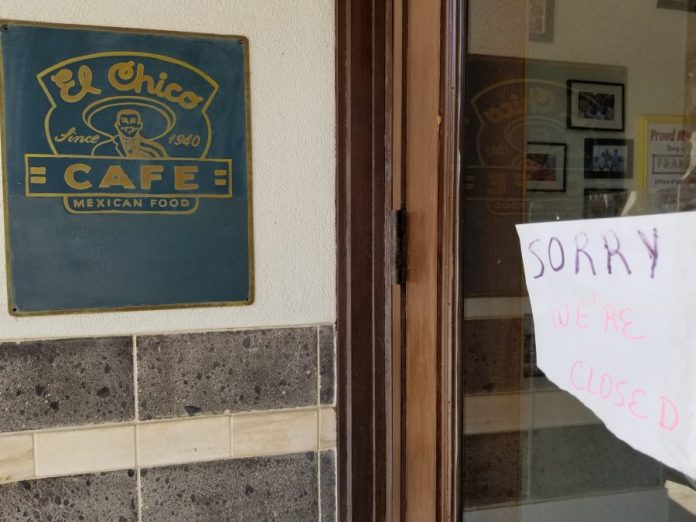 El Chico
Since 1940
CAFE
MEXICAN FOOD
Proud M
FRAN
SORRY
WE'RE
CLOSED